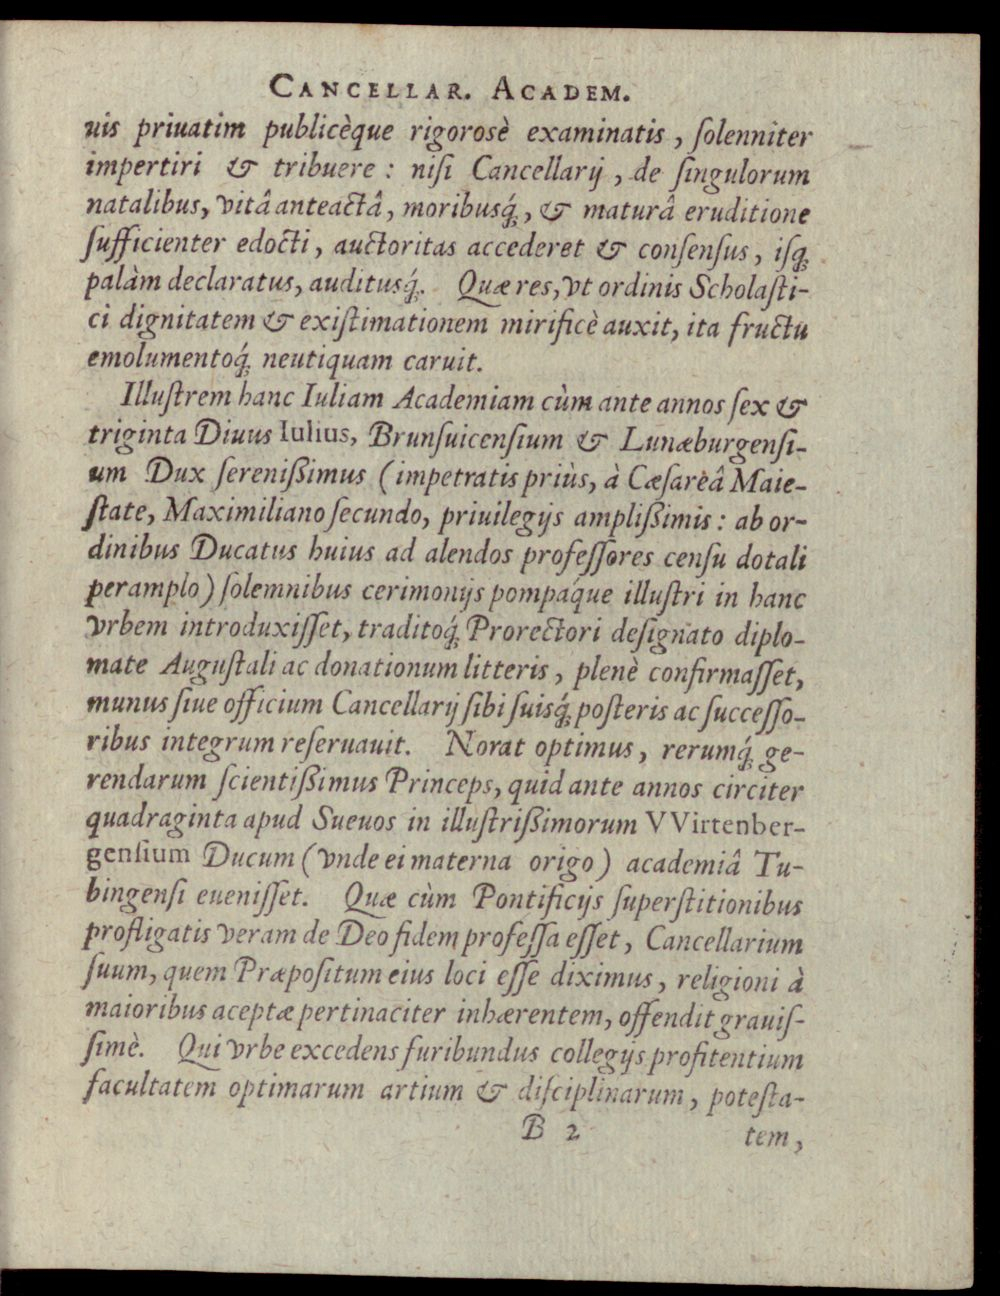 CANCELLAR. ACADEM.
uis priuatim publicèque rigorosè examinatis, ſolenniter
impertiri & tribuere: niſi Cancellarij, de ſingulorum
natalibus, vitâ anteactâ, moribusq́;, & maturâ eruditione
ſufficienter edocti, auctoritas accederet & conſenſus, iſq;
palàm declaratus, auditusq́;. Quæ res, vt ordinis Scholaſti-
ci dignitatem & exiſtimationem mirificè auxit, ita fructu
emolumentoq́; neutiquam caruit.
Illuſtrem hanc Iuliam Academiam cùm ante annos ſex &
triginta Diuus Iulius, Brunſuicenſium & Lunæburgenſi-
um Dux ſereniſſimus (impetratis priùs, à Cæſareâ Maie-
ſtate, Maximiliano ſecundo, priuilegijs ampliſſimis: ab or-
dinibus Ducatus huius ad alendos profeſſores cenſu dotali
peramplo) ſolemnibus cerimonijs pompáque illuſtri in hanc
vrbem introduxiſſet, traditoq́; Prorectori deſignato diplo-
mate Auguſtali ac donationum litteris, plenè confirmaſſet,
munus ſiue officium Cancellarij ſibi ſuisq́; poſteris ac ſucceſſo-
ribus integrum reſeruauit. Norat optimus, rerumq́; ge-
rendarum ſcientiſſimus Princeps, quid ante annos circiter
quadraginta apud Sueuos in illuſtriſſimorum VVirtenber-
genſium Ducum (vnde ei materna origo) academiâ Tu-
bingenſi eueniſſet. Quæ cùm Pontificijs ſuperſtitionibus
profligatis veram de Deo fidem profeſſa eſſet, Cancellarium
ſuum, quem Præpoſitum eius loci eſſe diximus, religioni à
maioribus aceptæ pertinaciter inhærentem, offendit grauiſ-
ſimè. Qui vrbe excedens furibundus collegijs profitentium
facultatem optimarum artium & diſciplinarum, poteſta-
B 2 tem,